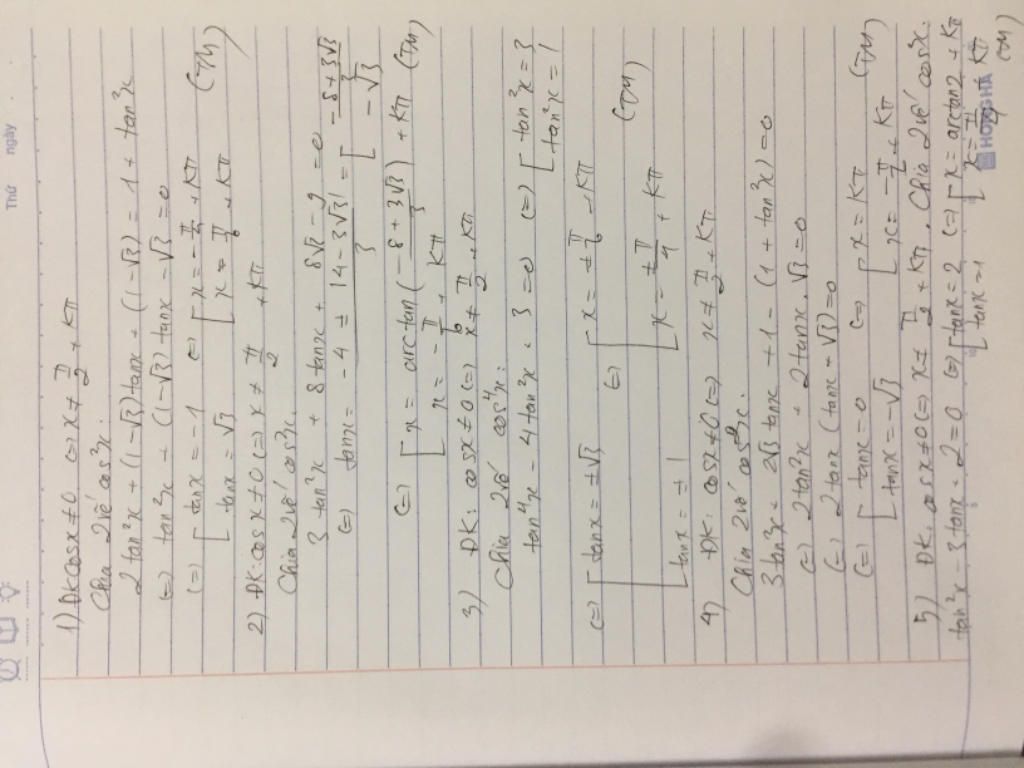 Thứ ngày
1) ĐK cosx ≠ 0 <=> x ≠ π/2 + kπ
Chia 2 vế cos²x.
2tan²x + (1-√3)tanx + (1-√3) = 1 + tan²x
<=> tan²x + (1-√3)tanx - √3 = 0
<=> [ tanx = -1 <=> [ x = -π/4 + kπ (TM)
[ tanx = √3 [ x = π/6 + kπ
2) ĐK: cosx ≠ 0 <=> x ≠ π/2 + kπ
Chia 2 vế cos²x.
3tan²x + 8tanx + 8√3 - 9 = 0
<=> tanx = -4 ± |4 - 3√3| / 3 = [ -8 + 3√3 / 3
[ -√3
<=> [ x = arctan(-8 + 3√3 / 3) + kπ (TM)
[ x = -π/6 + kπ
3) ĐK: cosx ≠ 0 <=> x ≠ π/2 + kπ
Chia 2 vế cos⁴x:
tan⁴x - 4tan²x + 3 = 0 <=> [ tan²x = 3
[ tan²x = 1
<=> [ tanx = ±√3 <=> [ x = ±π/6 + kπ
[ tanx = ±1 [ x = ±π/4 + kπ (TM)
4) ĐK: cosx ≠ 0 <=> x ≠ π/2 + kπ
Chia 2 vế cos²x.
3tan²x + 2√3 tanx + 1 - (1 + tan²x) = 0
<=> 2tan²x + 2tanx.√3 = 0
<=> 2tanx (tanx + √3) = 0
<=> [ tanx = 0 <=> [ x = kπ (TM)
[ tanx = -√3 [ x = -π/6 + kπ
5) ĐK: cosx ≠ 0 <=> x ≠ π/2 + kπ. Chia 2 vế cos²x.
tan²x - 3tanx + 2 = 0 <=> [ tanx = 2 <=> [ x = arctan2 + kπ
[ tanx = 1 [ x = π/4 + kπ
(TM)
HỒNG HÀ